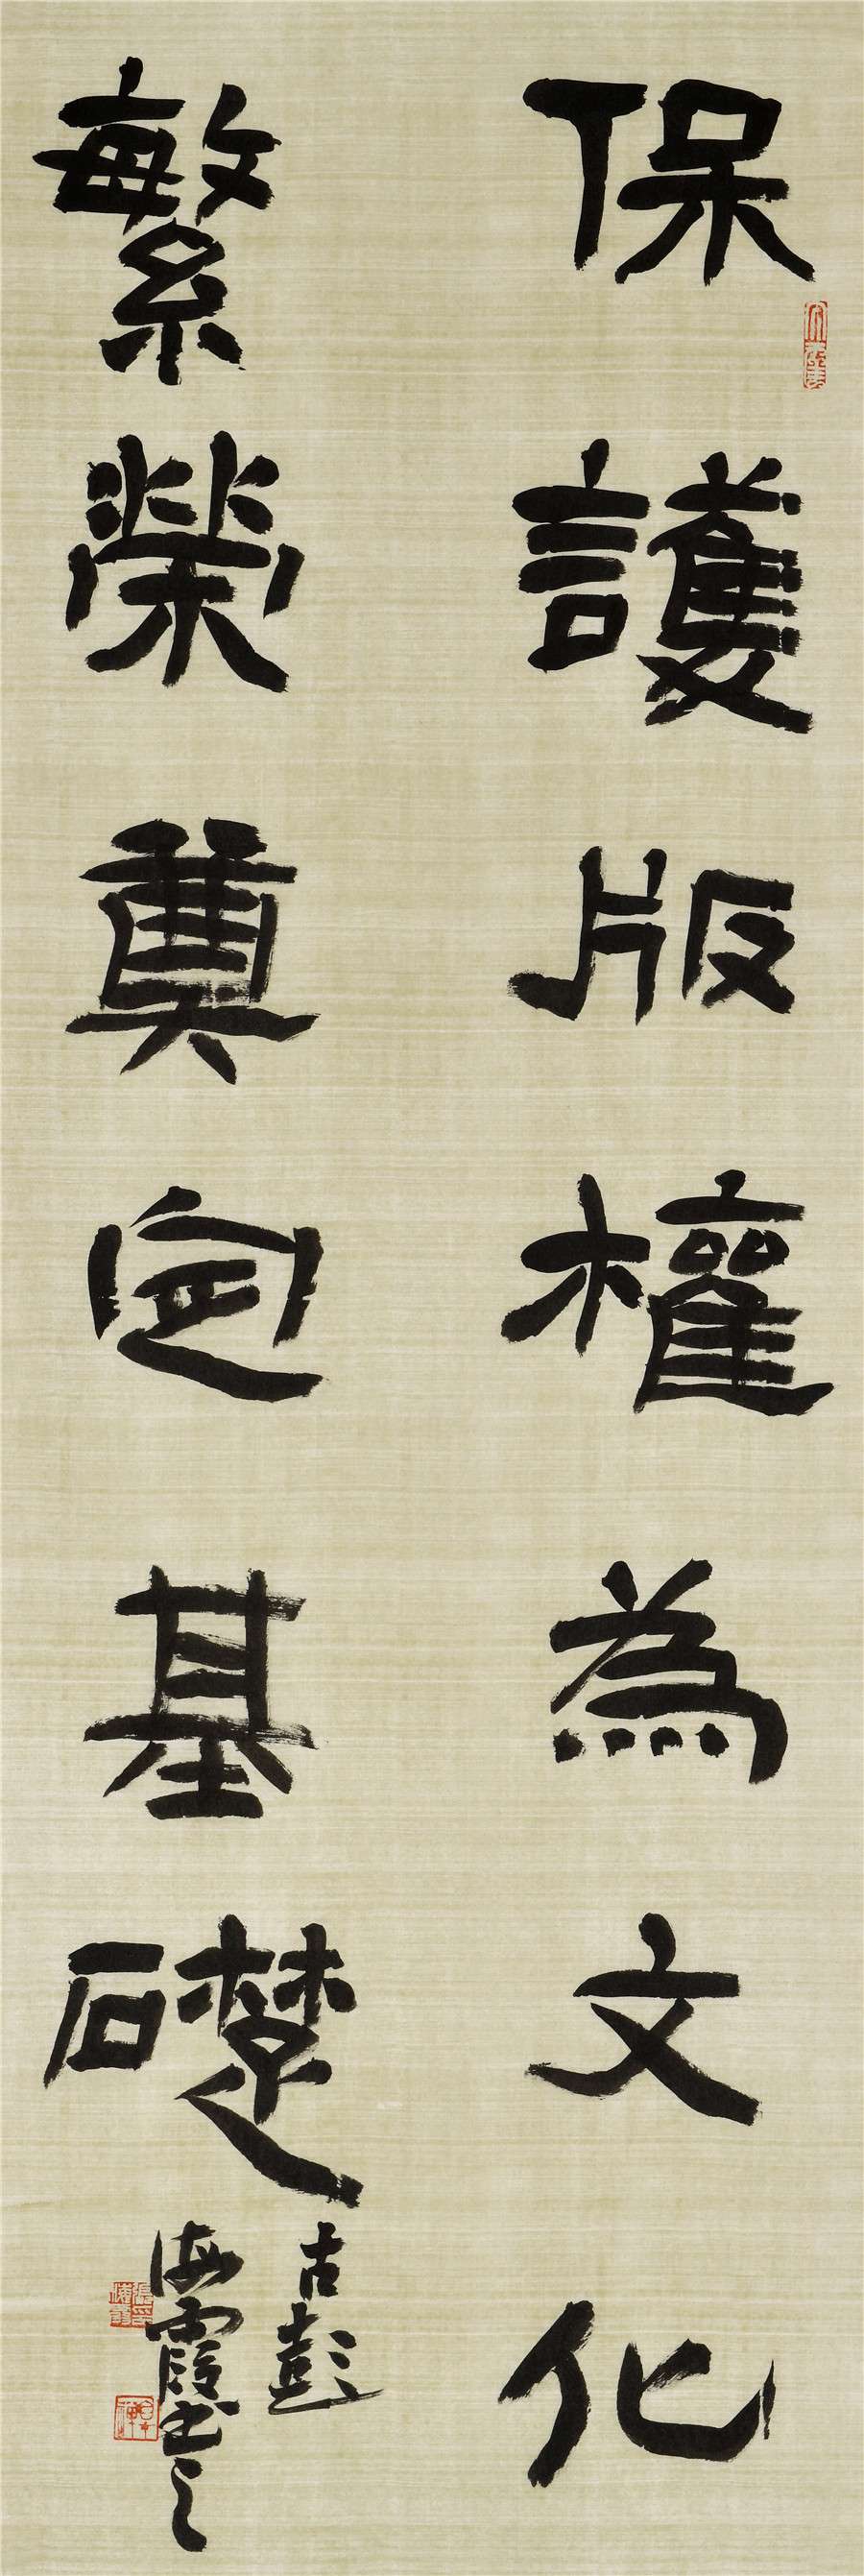 保護版權為文化
繁榮奠定基礎
古彭
海霞書之